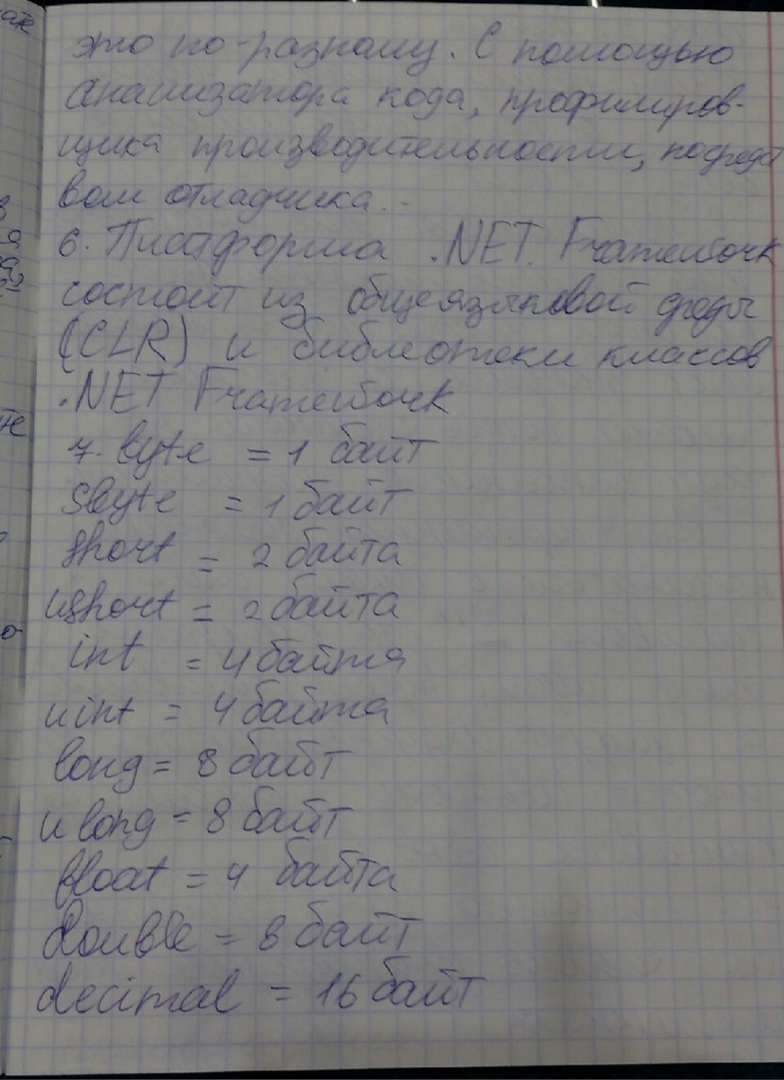 это по-разному. С помощью
анализатора кода, профилиров-
щика производительности, посредст
вом отладчика.
6. Платформа .NET Framework
состоит из общеязыковой среды
(CLR) и библиотеки классов
.NET Framework
7. byte = 1 байт
sbyte = 1 байт
short = 2 байта
ushort = 2 байта
int = 4 байта
uint = 4 байта
long = 8 байт
ulong = 8 байт
float = 4 байта
double = 8 байт
decimal = 16 байт